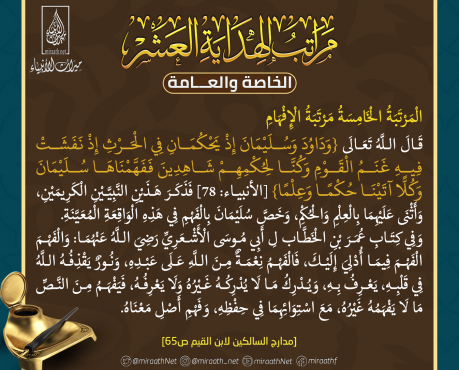 مَرَاتِبُ الهِدَايَةِ العَشْرِ
الخاصة والعــامة
miraath.net
ميراث الأنبياء
المَرْتَبَةُ الخَامِسَةُ مَرْتَبَةُ الإِفْهَامِ
قَالَ اللَّهُ تَعَالَى {وَدَاوُدَ وَسُلَيْمَانَ إِذْ يَحْكُمَانِ فِي الْحَرْثِ إِذْ نَفَشَتْ
فِيهِ غَنَمُ الْقَوْمِ وَكُنَّا لِحُكْمِهِمْ شَاهِدِينَ فَفَهَّمْنَاهَا سُلَيْمَانَ
وَكُلًّا آتَيْنَا حُكْمًا وَعِلْمًا} [الأنبياء: 78] فَذَكَرَ هَذَيْنِ النَّبِيَّيْنِ الْكَرِيمَيْنِ،
وَأَثْنَى عَلَيْهِمَا بِالْعِلْمِ وَالْحُكْمِ، وَخَصَّ سُلَيْمَانَ بِالْفَهْمِ فِي هَذِهِ الْوَاقِعَةِ الْمُعَيَّنَةِ.
وَفِي كِتَابِ عُمَرَ بْنِ الْخَطَّابِ لِ أَبِي مُوسَى الْأَشْعَرِيِّ رَضِيَ اللَّهُ عَنْهُمَا: وَالْفَهْمَ
الْفَهْمَ فِيمَا أُدْلِيَ إِلَيْكَ، فَالْفَهْمُ نِعْمَةٌ مِنَ اللَّهِ عَلَى عَبْدِهِ، وَنُورٌ يَقْذِفُهُ اللَّهُ
فِي قَلْبِهِ، يَعْرِفُ بِهِ، وَيُدْرِكُ مَا لَا يُدْرِكُهُ غَيْرُهُ وَلَا يَعْرِفُهُ، فَيَفْهَمُ مِنَ النَّصِّ
مَا لَا يَفْهَمُهُ غَيْرُهُ، مَعَ اسْتِوَائِهِمَا فِي حِفْظِهِ، وَفَهْمِ أَصْلِ مَعْنَاهُ.
[مدارج السالكين لابن القيم ص65]
@miraathNet @miraath_net miraathNet miraathf